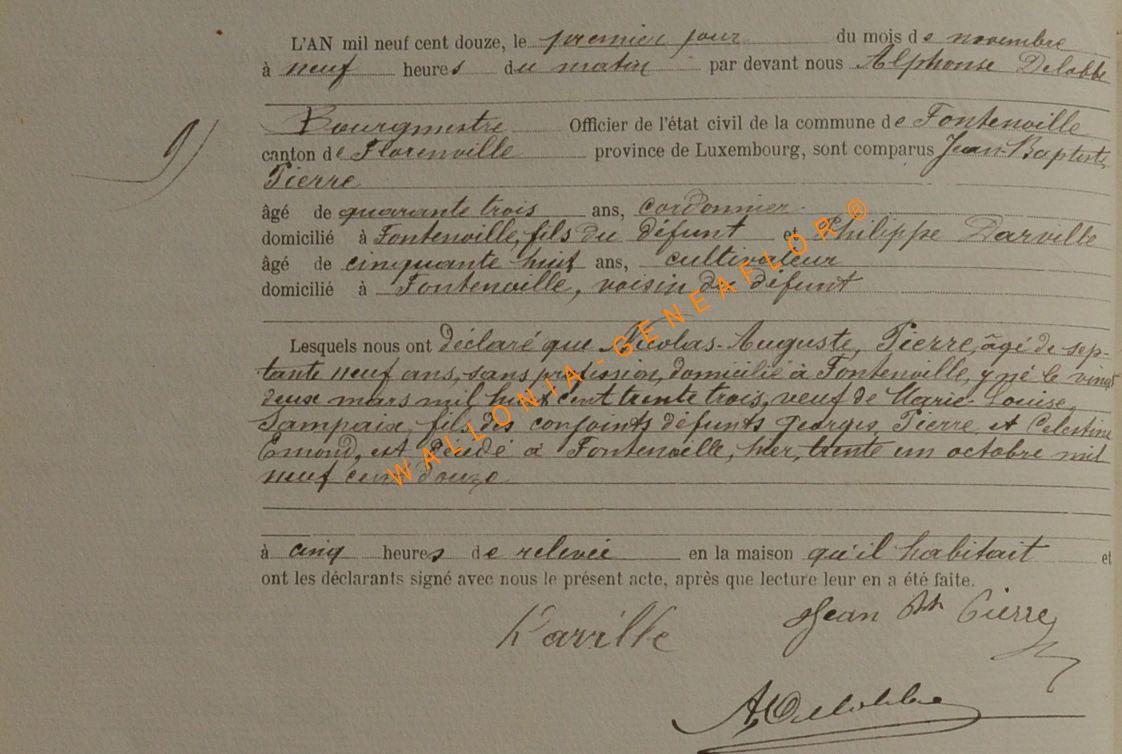 L'AN mil neuf cent douze, le premier jour du mois de novembre
à neuf heures du matin par devant nous Alphonse Delobbe
Bourgmestre Officier de l'état civil de la commune de Fontenoille
9)
canton de Florenville province de Luxembourg, sont comparus Jean-Baptiste
Pierre
âgé de quarante trois ans, cordonnier
domicilié à Fontenoille, fils du défunt et Philippe Darville
âgé de cinquante huit ans, cultivateur
domicilié à Fontenoille, voisin du défunt
Lesquels nous ont déclaré que Nicolas-Auguste, Pierre, âgé de sep-
tante neuf ans, sans profession, domicilié à Fontenoille, y né le vingt
deux mars mil huit cent trente trois, veuf de Marie-Louise
Sampaix, fils des conjoints défunts Georges, Pierre et Celestine
Emond, est décédé à Fontenoille, hier, trente un octobre mil
neuf cent douze
à cinq heures de relevée en la maison qu'il habitait et
ont les déclarants signé avec nous le présent acte, après que lecture leur en a été faite.
Darville Jean Bte Pierre
A Delobbe
WALLONIA-GENEAFLOR®